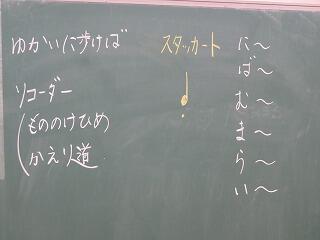 ゆかいに歩けば
リコーダー
もののけひめ
かえり道
スタッカート
に〜
ば〜
む〜
ま〜
ら〜
い〜